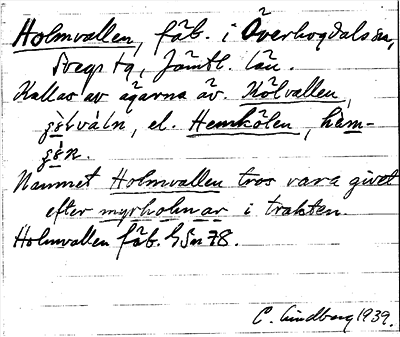 Holmvallen, fäb. i Överhogdals sn,
Svegs tg, Jämtl. län.
Kallas av ägarna äv. Kölvallen,
el. Hemkölen, häm-
Namnet Holmvallen tros vara givet
efter myrholmar i trakten.
Holmvallen fäb. GSn 78.
C. Lindberg 1939.